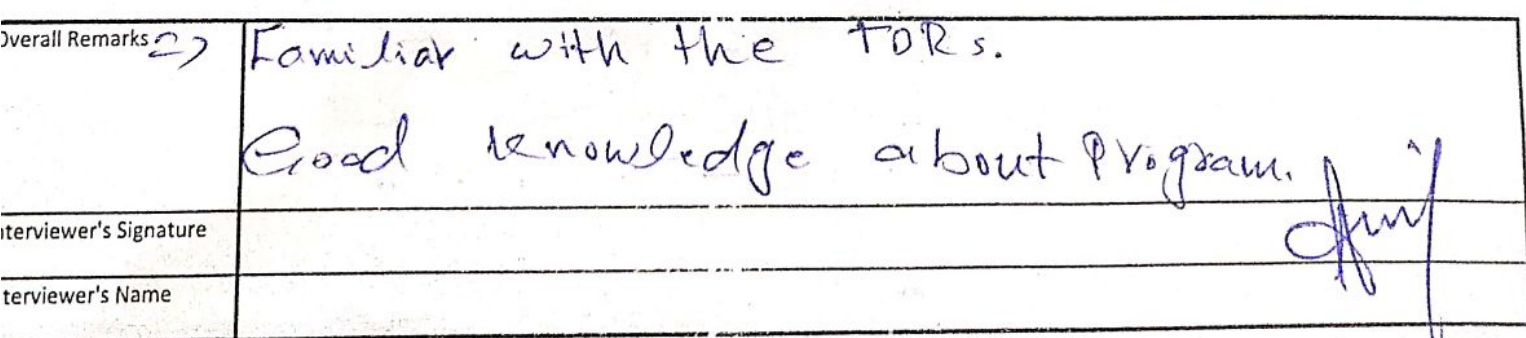 Overall Remarks => Familiar with the TORs.
Good knowledge about Program.
nterviewer's Signature
terviewer's Name